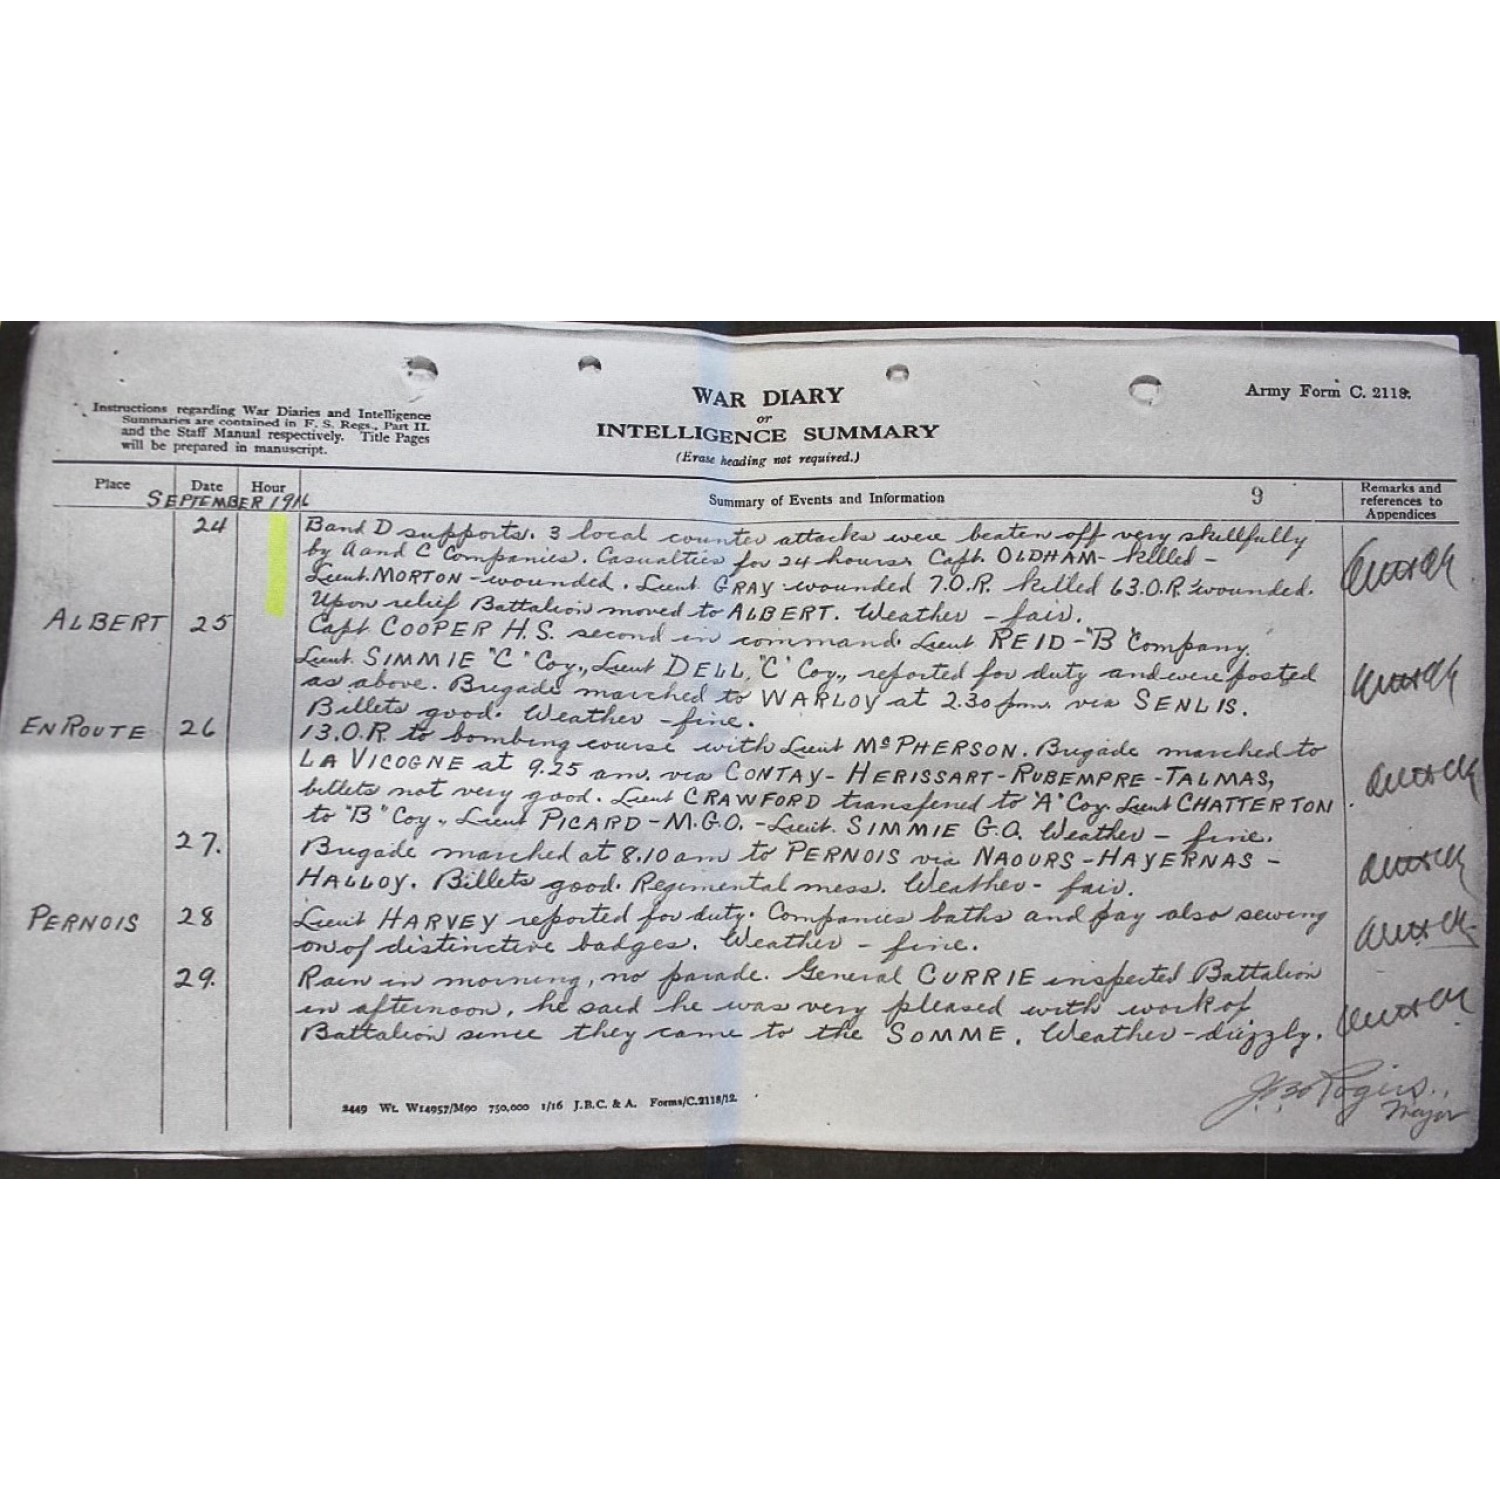 Instructions regarding War Diaries and Intelligence
Summaries are contained in F. S. Regs., Part II.
and the Staff Manual respectively. Title Pages
will be prepared in manuscript.
WAR DIARY
or
INTELLIGENCE SUMMARY
(Erase heading not required.)
Army Form C. 2118.
Place Date Hour Summary of Events and Information 9 Remarks and
references to
Appendices
SEPTEMBER 1916
24 B and D supports. 3 local counter attacks were beaten off very skillfully
by A and C Companies. Casualties for 24 hours. Capt. OLDHAM - killed -
Lieut. MORTON - wounded. Lieut GRAY wounded 7.O.R. killed 63.O.R. wounded.
Upon relief Battalion moved to ALBERT. Weather - fair.
ALBERT 25 Capt COOPER H.S. second in command. Lieut REID - "B" Company.
Lieut. SIMMIE "C" Coy., Lieut DELL, "C" Coy., reported for duty and were posted
as above. Brigade marched to WARLOY at 2.30 p.m. via SENLIS.
Billets good. Weather - fine.
EN ROUTE 26 13.O.R. to bombing course with Lieut McPHERSON. Brigade marched to
LA VICOGNE at 9.25 am. via CONTAY - HERISSART - RUBEMPRE - TALMAS,
billets not very good. Lieut CRAWFORD transferred to "A" Coy. Lieut CHATTERTON
to "B" Coy., Lieut PICARD - M.G.O. - Lieut. SIMMIE G.O. Weather - fine.
27. Brigade marched at 8.10 am to PERNOIS via NAOURS - HAVERNAS -
HALLOY. Billets good. Regimental mess. Weather - fair.
PERNOIS 28 Lieut HARVEY reported for duty. Companies baths and pay also sewing
on of distinctive badges. Weather - fine.
29. Rain in morning, no parade. General CURRIE inspected Battalion
in afternoon, he said he was very pleased with work of
Battalion since they came to the SOMME. Weather - drizzly.
Rogers,
Major
2449 Wt. W14957/M90 750,000 1/16 J.B.C. & A. Forms/C.2118/12.